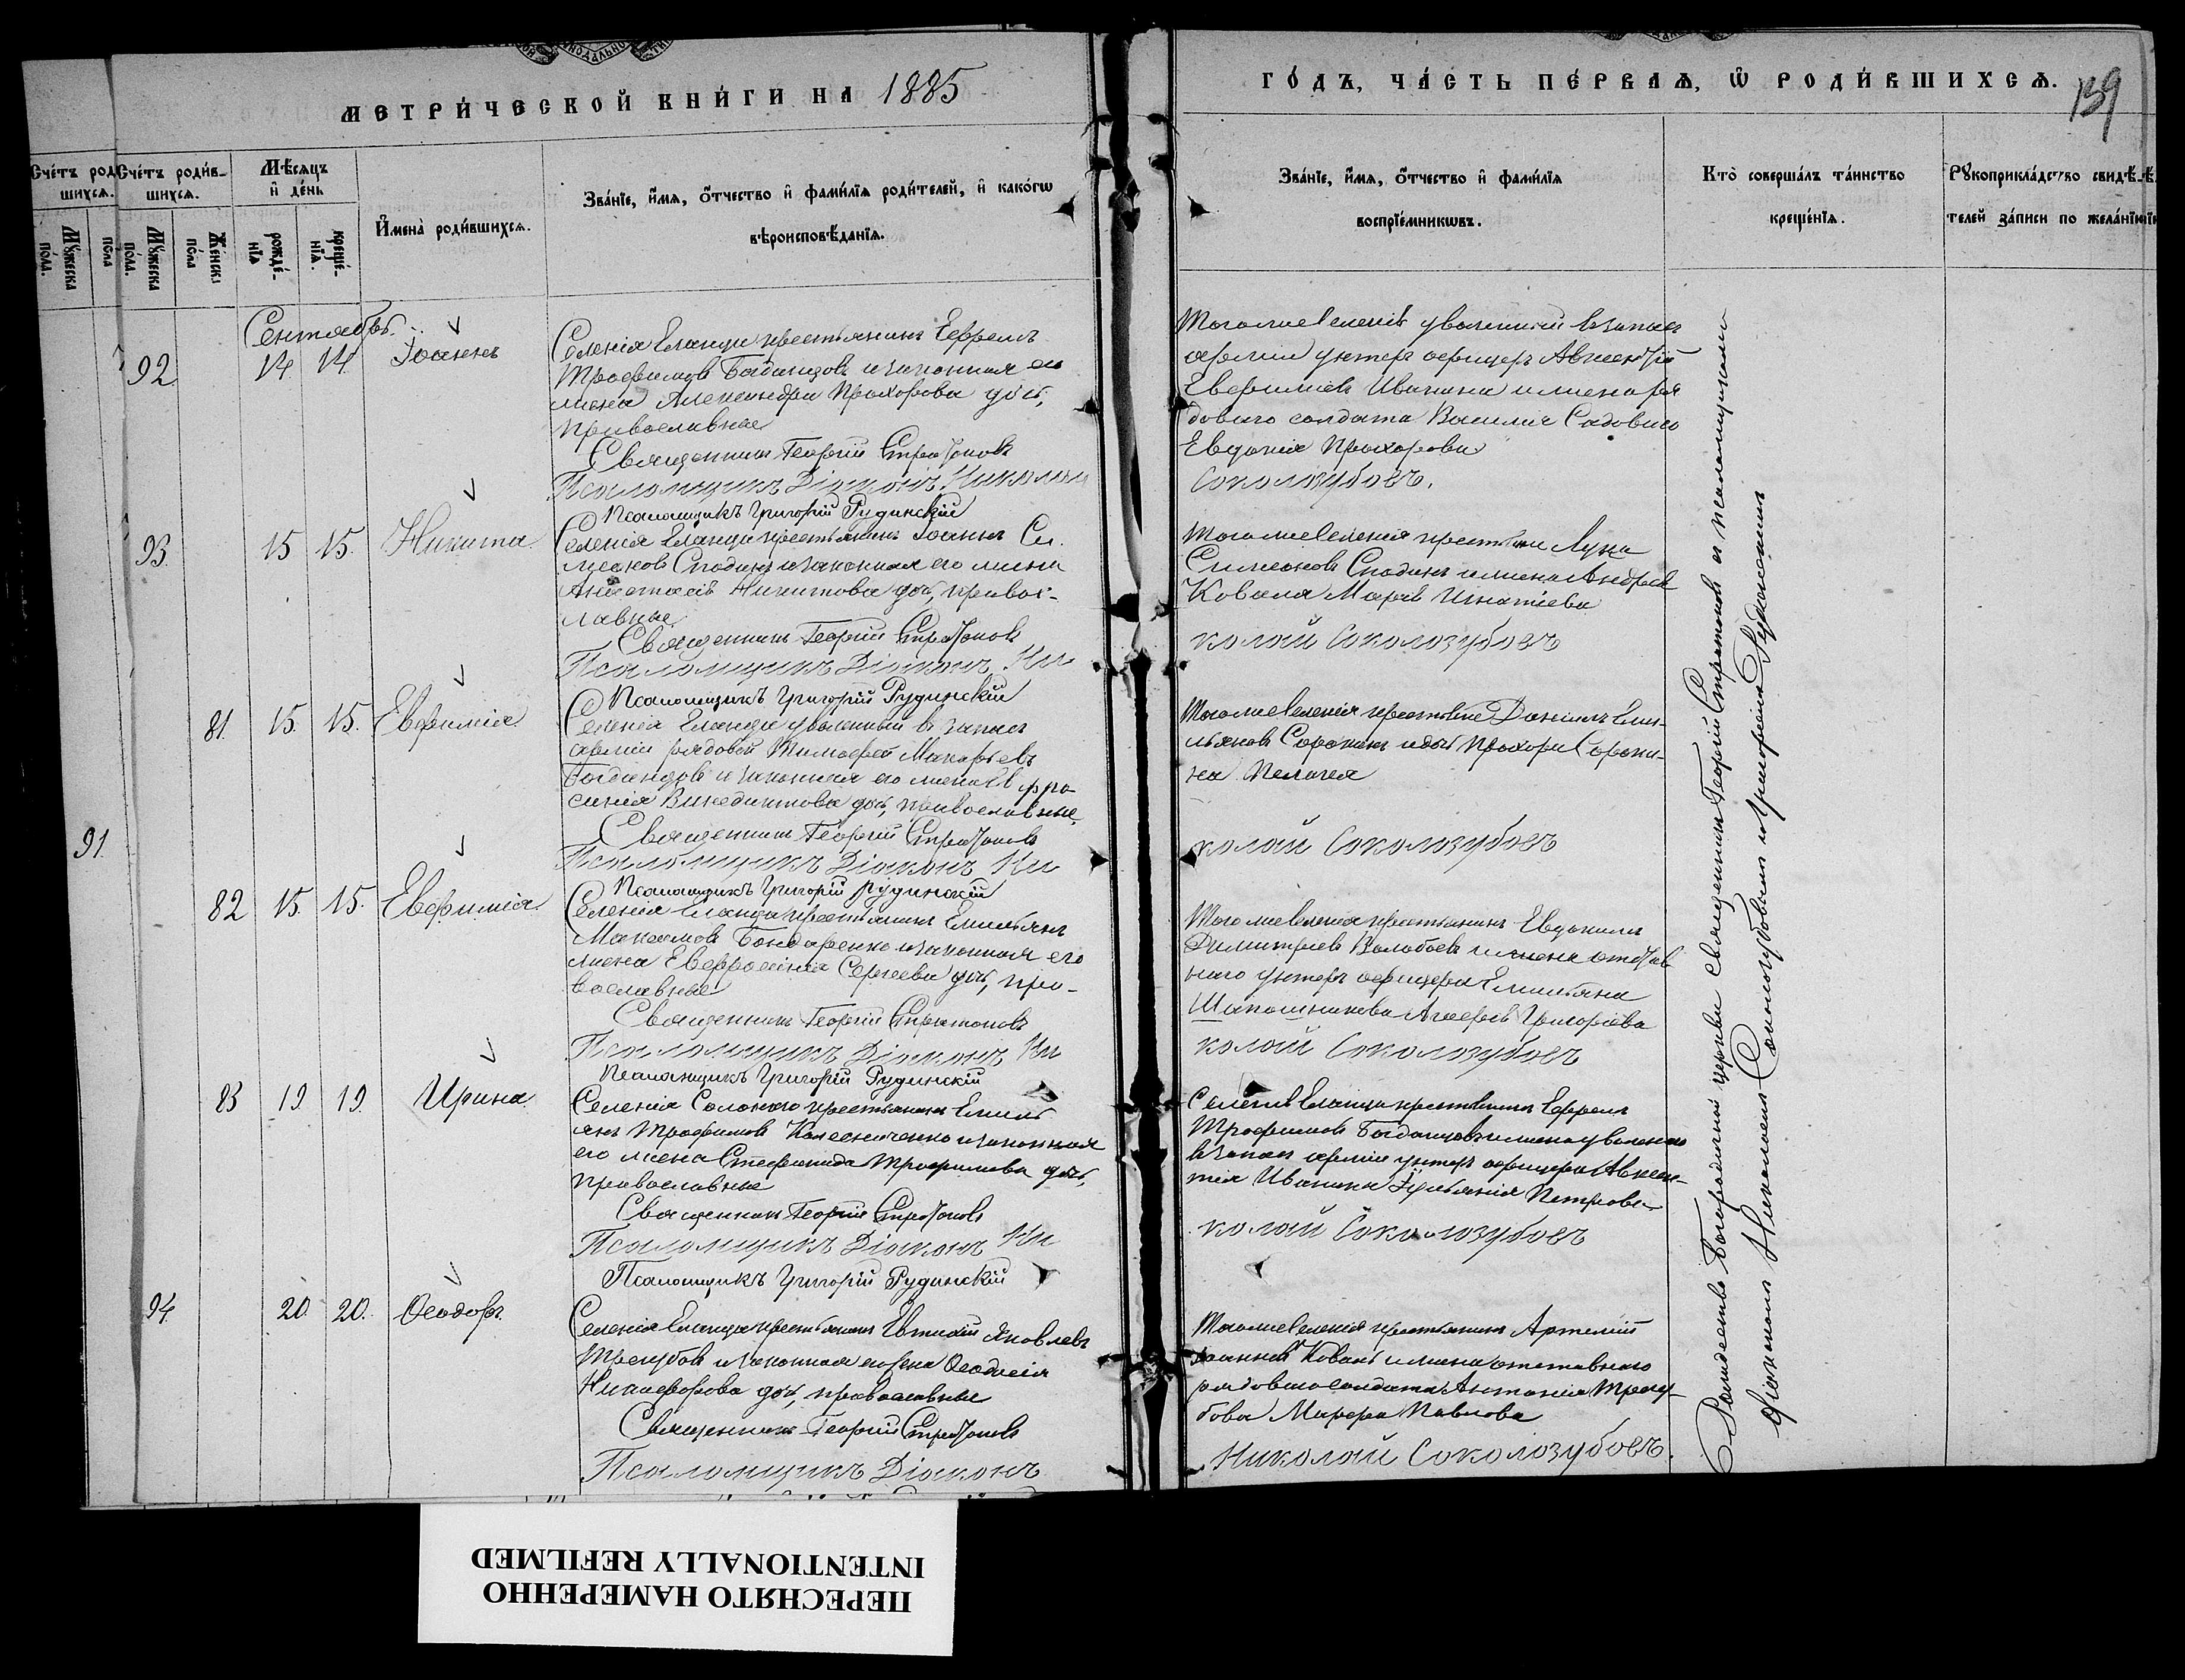 МЕТРИ́ЧЕСКОЙ КНИ́ГИ НА 1885
ГО́ДЪ, ЧА́СТЬ ПЕ́РВАѦ, Ѡ РОДИ́ВШИХСѦ.
139
Счéтъ род
шихсѧ.
Мꙋжеска
пóла.
пóла
Счéтъ роди́в-
шихсѧ.
Мꙋжеска
пóла.
Жéнска
пóла
Мѣ́сяцъ
и҆ дéнь
рождé-
нїѧ
крещé-
нїѧ.
И҆мена̀ роди́вшихсѧ.
Звáнїе, и҆́мѧ, ѻ҆́тчество и҆ фами́лїѧ роди́телей, и҆ какóгѡ
вѣроисповѣ́данїѧ.
Звáнїе, и҆́мѧ, ѻ҆́тчество и҆ фами́лїѧ
воспрїéмникѡвъ.
Кто̀ совершáлъ тáинство
крещéнїѧ.
Рꙋкоприклáдство свидѣ́-
телей зáписи по желáнїю
Сентябрь.
92 14 14 Іоаннъ
Селенія Еланци крестьянинъ Ефремъ
Трофимовъ Богданцовъ и законная его
жена Александра Прохорова доч,
православные
Священникъ Георгій Стратоновъ
Псаломщикъ Діаконъ Николай
Псаломщикъ Григорій Рудинскій
Тогоже селенія уволенный въ запас
арміи унтеръ офицеръ Авксентій
Евфимиевъ Иванина и жена ря
доваго солдата Василія Садоваго
Евдокія Прохорова
Соколозубовъ.
93. 15 15. Никита
Селенія Еланци крестьянинъ Іоаннъ Си-
меоновъ Сподинъ и законная его жена
Анастасія Никитова доч, правос-
лавные
Священникъ Георгій Стратоновъ
Псаломщикъ Діаконъ Ни
Псаломщикъ Григорій Рудинскій
Тогоже селенія крестьяне Лука
Симеоновъ Сподинъ и жена Андрея
Коваля Марія Игнатіева
колай Соколозубовъ
81. 15. 15. Евфимія
Селенія Еланци уволенный въ запас
арміи рядовой Тимофей Макарьевъ
Богданцовъ и законная его жена Евфро-
синія Винедиктова доч, православные
Священникъ Георгій Стратоновъ
Псаломщикъ Діаконъ Ни
Псаломщикъ Григорій Рудинскій
Тогоже селенія крестьяне Даніилъ Еми-
льяновъ Сорокинъ и доч Прохора Сороки-
на Пелагея
колай Соколозубовъ
91.
82 15. 15. Евфимія
Селенія Еланци крестьянинъ Емильянъ
Максимовъ Бондаренко и законная его
жена Евфросинія Сергеева доч, пра-
вославные
Священникъ Георгій Стратоновъ
Псаломщикъ Діаконъ Ни
Псаломщикъ Григорій Рудинскій
Тогоже селенія крестьянинъ Евдокимъ
Димитріевъ Волобоевъ и жена отстав-
наго унтеръ офицера Емильяна
Шапошникова Агафія Григорьева
колай Соколозубовъ
83 19 19. Ирина
Селенія крестьянинъ Емиль
янъ Трофимовъ Колесниченко и законная
его жена Стефанида Трофимова доч,
православные
Священникъ Георгій Стратоновъ
Псаломщикъ Діаконъ Ни
Псаломщикъ Григорій Рудинскій
Селенія Еланци крестьянинъ Ефремъ
Трофимовъ Богданцовъ и жена уволеннаго
въ запас арміи унтеръ офицера Авксен-
тія Иванина Іуліанія Петрова
колай Соколозубовъ
94. 20. 20. Ѳеодоръ
Селенія Еланци крестьянинъ Евтихій Яковлевъ
Трегубовъ и законная его жена Ѳеодосія
Никифорова доч, православные
Священникъ Георгій Стратоновъ
Псаломщикъ Діаконъ
Тогоже селенія крестьянинъ Артемій
Іоанновъ Коваль и жена отставнаго
рядоваго солдата Антонія Трегу-
бова Марфа Павлова
Николай Соколозубовъ.
Рождество Богородичной церкви священникъ Георгій Стратоновъ съ псаломщиками
діакономъ Николаемъ Соколозубовымъ и Григоріемъ Рудинскимъ
ПЕРЕСНЯТО НАМЕРЕННО
INTENTIONALLY REFILMED